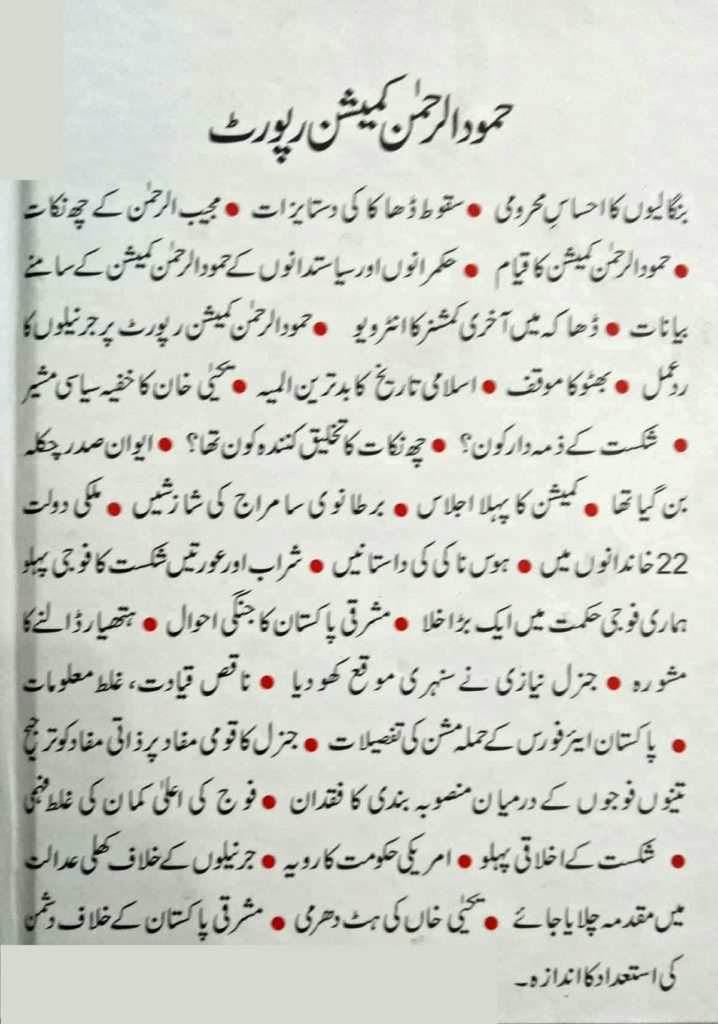 حمودالرحمٰن کمیشن رپورٹ
بنگالیوں کا احساسِ محرومی ● سقوط ڈھاکا کی دستایزات ● مجیب الرحمٰن کے چھ نکات
● حمودالرحمٰن کمیشن کا قیام ● حکمرانوں اور سیاستدانوں کے حمودالرحمٰن کمیشن کے سامنے
بیانات ● ڈھاکہ میں آخری کمشنر کا انٹرویو ● حمودالرحمٰن کمیشن رپورٹ پر جرنیلوں کا
ردعمل ● بھٹو کا موقف ● اسلامی تاریخ کا بدترین المیہ ● یحیٰی خان کا خفیہ سیاسی مشیر
● شکست کے ذمہ دار کون؟ ● چھ نکات کا تخلیق کنندہ کون تھا؟ ● ایوان صدر چکلہ
بن گیا تھا ● کمیشن کا پہلا اجلاس ● برطانوی سامراج کی شازشیں ● ملکی دولت
22 خاندانوں میں ● ہوس ناکی کی داستانیں ● شراب اور عورتیں شکست کا فوجی پہلو
ہماری فوجی حکمت میں ایک بڑا خلا ● مشرقی پاکستان کا جنگی احوال ● ہتھیار ڈالنے کا
مشورہ ● جنرل نیازی نے سنہری موقع کھو دیا ● ناقص قیادت، غلط معلومات
● پاکستان ایئر فورس کے حملہ مشن کی تفصیلات ● جنرل کا قومی مفاد پر ذاتی مفاد کو ترجیح
تینوں فوجوں کے درمیان منصوبہ بندی کا فقدان ● فوج کی اعلیٰ کمان کی غلط فہمی
● شکست کے اخلاقی پہلو ● امریکی حکومت کا رویہ ● جرنیلوں کے خلاف کھلی عدالت
میں مقدمہ چلایا جائے ● یحیٰی خاں کی ہٹ دھرمی ● مشرقی پاکستان کے خلاف دشمن
کی استعداد کا اندازہ۔